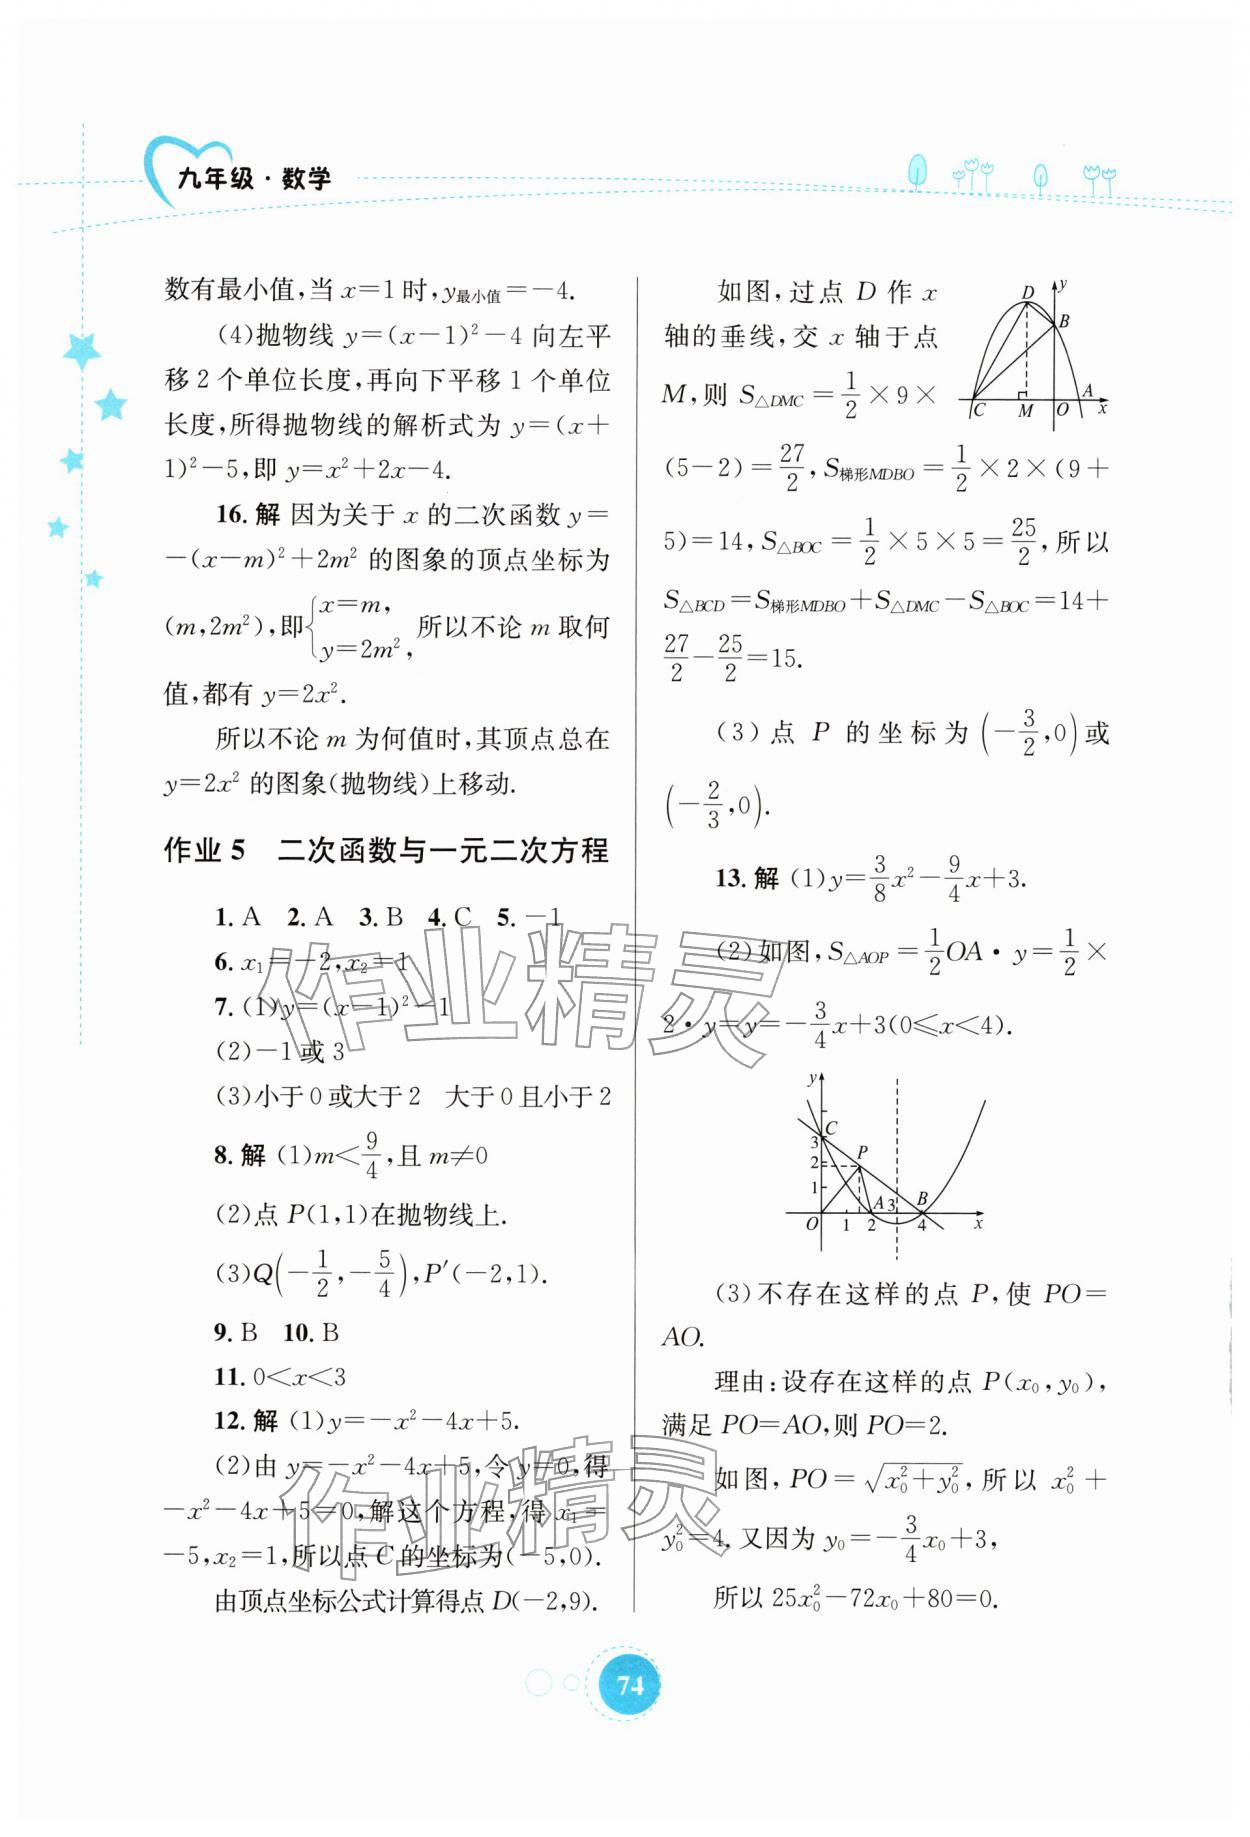 九年级·数学
数有最小值,当 x=1 时,y最小值=-4.
(4)抛物线 y=(x-1)²-4 向左平
移 2 个单位长度,再向下平移 1 个单位
长度,所得抛物线的解析式为 y=(x+
1)²-5,即 y=x²+2x-4.
16. 解 因为关于 x 的二次函数 y=
-(x-m)²+2m² 的图象的顶点坐标为
(m,2m²),即{x=m, y=2m², 所以不论 m 取何
值,都有 y=2x².
所以不论 m 为何值时,其顶点总在
y=2x² 的图象(抛物线)上移动.
作业 5 二次函数与一元二次方程
1. A 2. A 3. B 4. C 5. -1
6. x₁=-2,x₂=1
7. (1)y=(x-1)²-1
(2)-1 或 3
(3)小于 0 或大于 2 大于 0 且小于 2
8. 解 (1)m<9/4,且 m≠0
(2)点 P(1,1)在抛物线上.
(3)Q(-1/2,-5/4),P′(-2,1).
9. B 10. B
11. 0<x<3
12. 解 (1)y=-x²-4x+5.
(2)由 y=-x²-4x+5,令 y=0,得
-x²-4x+5=0,解这个方程,得 x₁=
-5,x₂=1,所以点 C 的坐标为(-5,0).
由顶点坐标公式计算得点 D(-2,9).
如图,过点 D 作 x
轴的垂线,交 x 轴于点
M,则 S△DMC=1/2×9×
(5-2)=27/2,S梯形MDBO=1/2×2×(9+
5)=14,S△BOC=1/2×5×5=25/2,所以
S△BCD=S梯形MDBO+S△DMC-S△BOC=14+
27/2-25/2=15.
D y
B
C M O A x
(3)点 P 的坐标为(-3/2,0)或
(-2/3,0).
13. 解 (1)y=3/8x²-9/4x+3.
(2)如图,S△AOP=1/2OA·y=1/2×
2·y=y=-3/4x+3(0≤x<4).
y
C
3
2
1
P
A 3 B
O 1 2 4 x
(3)不存在这样的点 P,使 PO=
AO.
理由:设存在这样的点 P(x₀,y₀),
满足 PO=AO,则 PO=2.
如图,PO=√(x₀²+y₀²),所以 x₀²+
y₀²=4.又因为 y₀=-3/4x₀+3,
所以 25x₀²-72x₀+80=0.
74
作业精灵
作业精灵